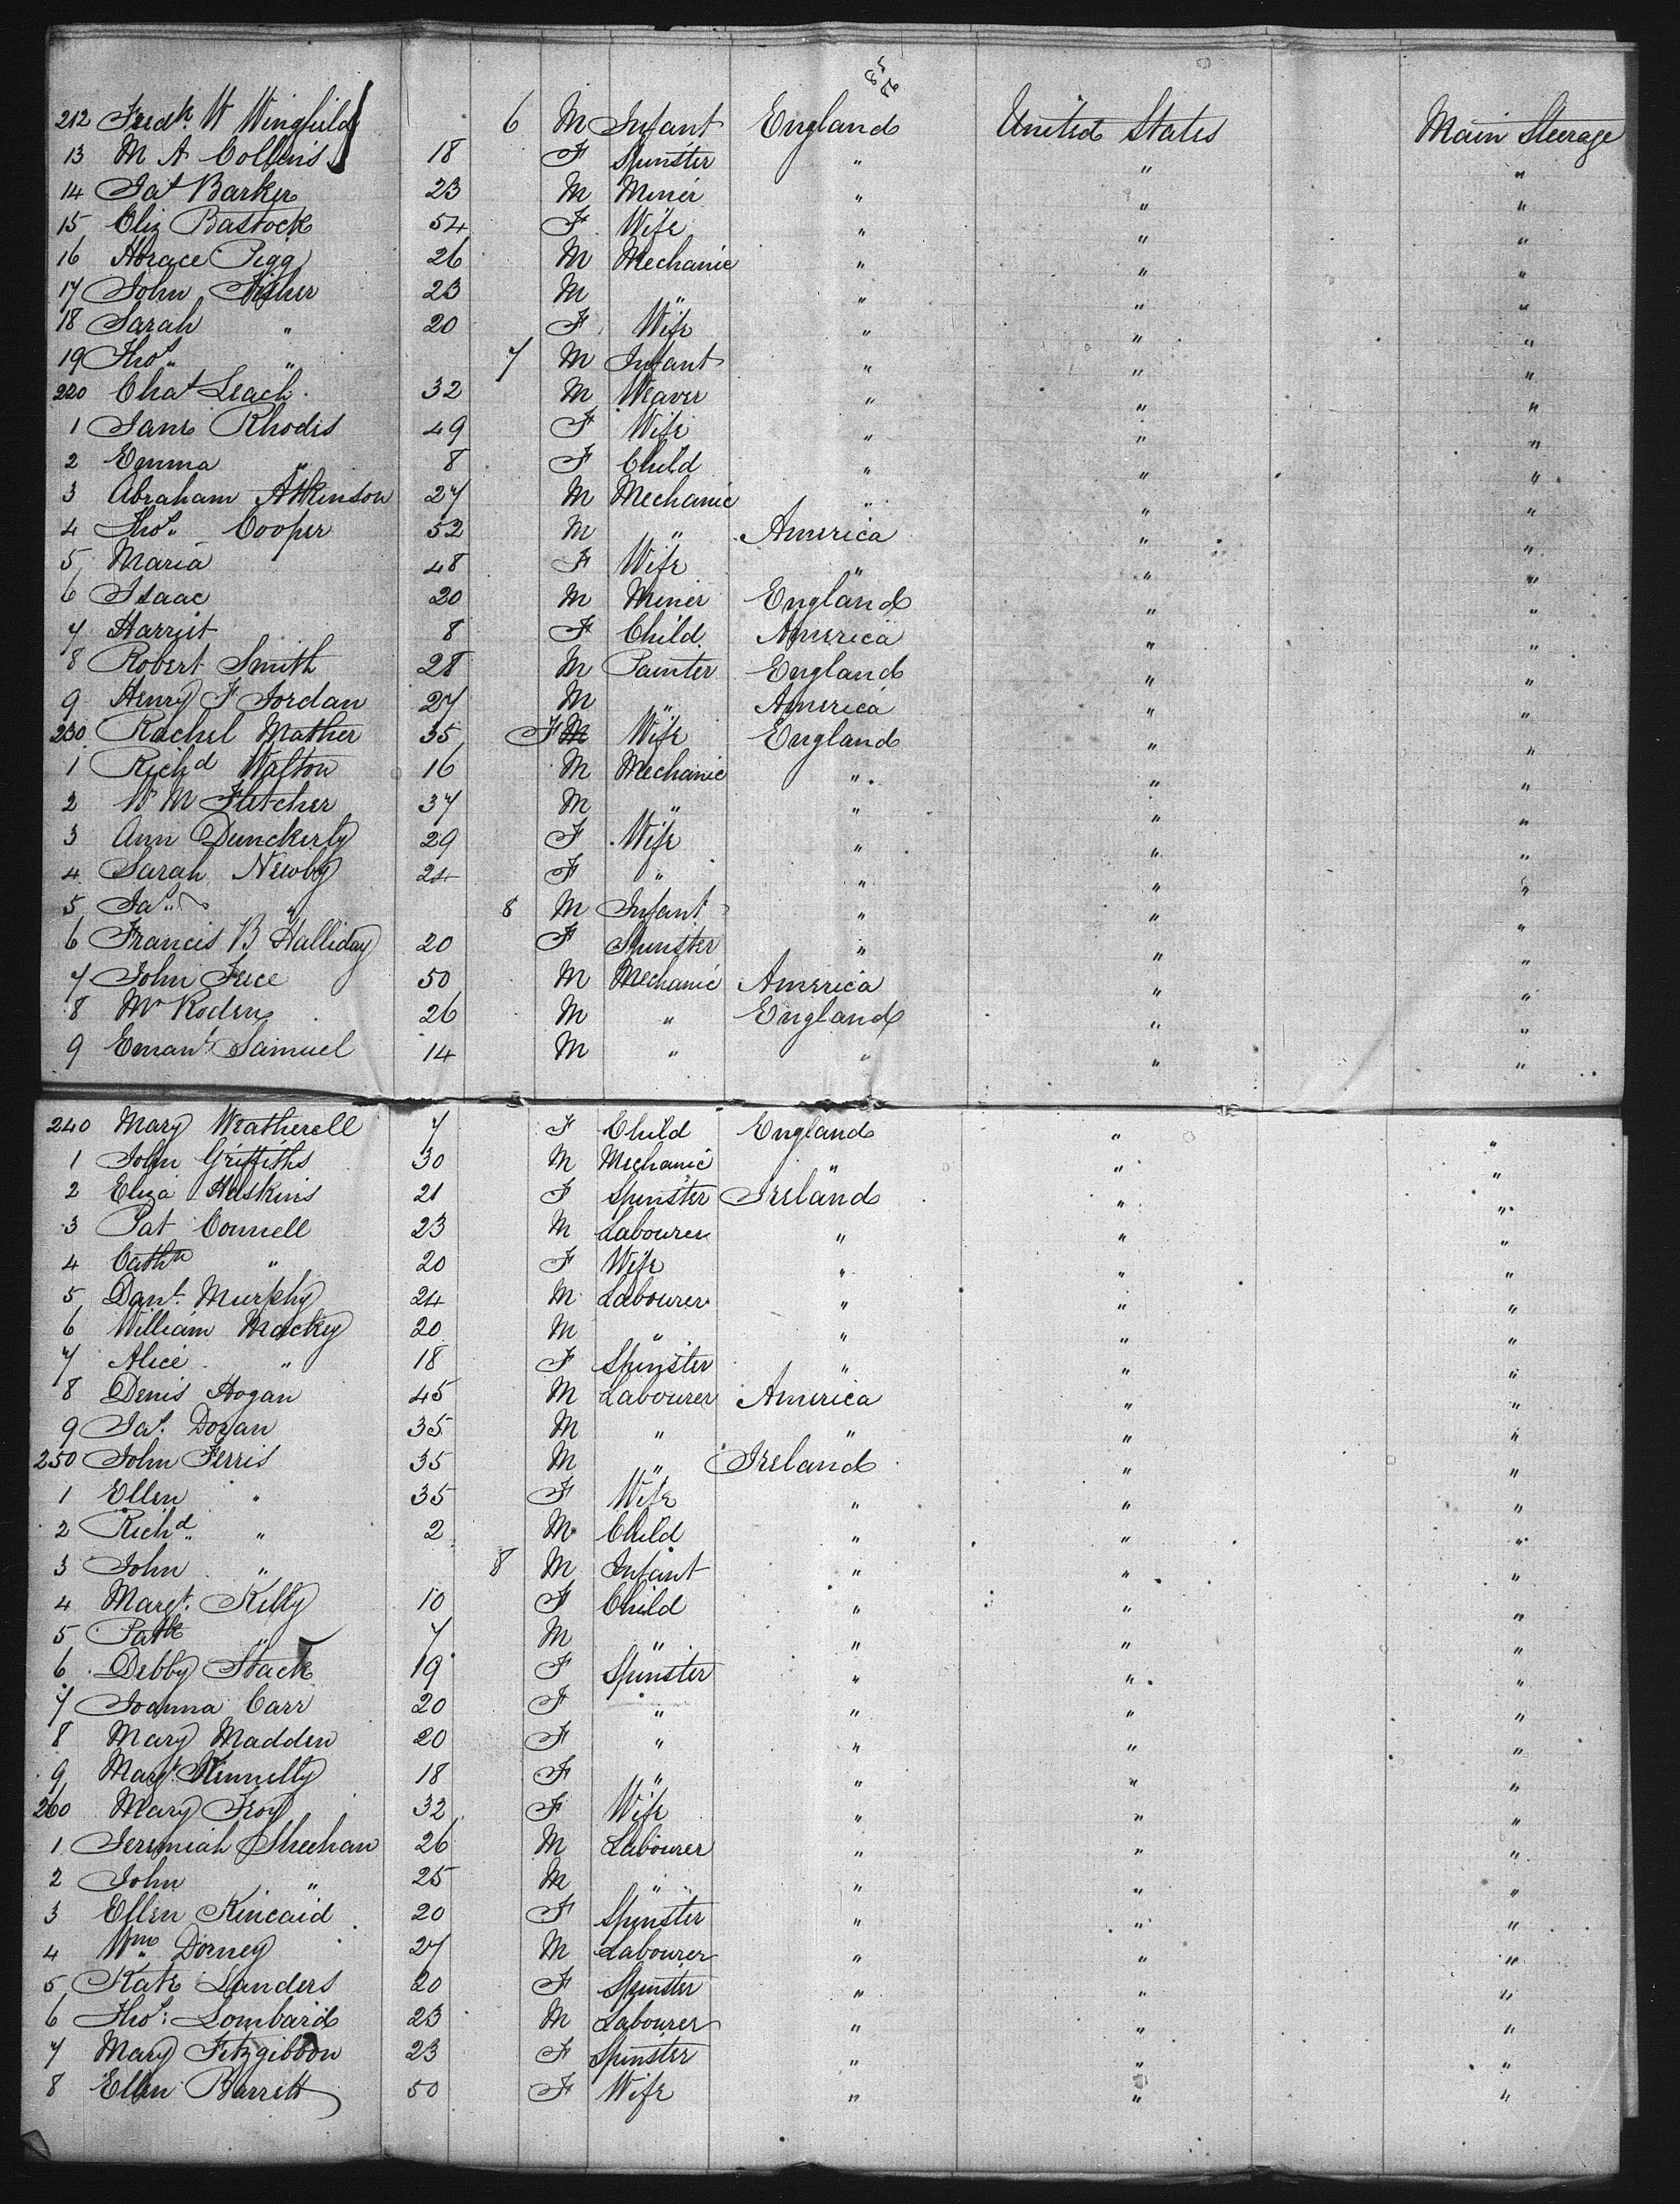 212 Fredk. W Wingfield 6 M Infant England United States Main Steerage
13 M A Collins 18 F Spinster " " "
14 Jas Barker 23 M Miner " " "
15 Eliz Bastock 54 F Wife " " "
16 Horace Pigg 26 M Mechanic " " "
17 John Fisher 23 M " " " "
18 Sarah " 20 F Wife " " "
19 Thos. " 7 M Infant " " "
220 Chas Leach 32 M Weaver " " "
1 Jane Rhodes 49 F Wife " " "
2 Emma " 8 F Child " " "
3 Abraham Atkinson 27 M Mechanic " " "
4 Thos. Cooper 52 M " America " "
5 Maria 48 F Wife " " "
6 Isaac 20 M Miner England " "
7 Harriet 8 F Child America " "
8 Robert Smith 28 M Painter England " "
9 Henry F Jordan 27 M " America " "
230 Rachel Mather 35 F M Wife England " "
1 Richd Walton 16 M Mechanic " " "
2 W M Fletcher 37 M " " " "
3 Ann Dunckerly 29 F Wife " " "
4 Sarah Newby 24 F " " " "
5 Jas. " 8 M Infant " " "
6 Francis B Halliday 20 F Spinster " " "
7 John 50 M Mechanic America " "
8 Wm Roden 26 M " England " "
9 Emanl. Samuel 14 M " " " "
240 Mary Weatherell 7 F Child England " "
1 John Griffiths 30 M Mechanic " " "
2 Eliza Haskins 21 F Spinster Ireland " "
3 Pat Connell 23 M Labourer " " "
4 Cathn " 20 F Wife " " "
5 Danl. Murphy 24 M Labourer " " "
6 William Mackey 20 M " " " "
7 Alice " 18 F Spinster " " "
8 Denis Hogan 45 M Labourer America " "
9 Jas. Doran 35 M " " " "
250 John Ferris 35 M " Ireland " "
1 Ellen " 35 F Wife " " "
2 Richd. " 2 M Child " " "
3 John " 8 M Infant " " "
4 Margt. Kelly 10 F Child " " "
5 Patk " 7 M " " " "
6 Debby Stack 19 F Spinster " " "
7 Joanna Carr 20 F " " " "
8 Mary Madden 20 F " " " "
9 Margt. Kennelly 18 F " " " "
260 Mary Troy 32 F Wife " " "
1 Jeremiah Sheehan 26 M Labourer " " "
2 John " 25 M " " " "
3 Ellen Kincaid 20 F Spinster " " "
4 Wm. Dorney 27 M Labourer " " "
5 Kate Landers 20 F Spinster " " "
6 Thos: Lombard 23 M Labourer " " "
7 Mary Fitzgibbon 23 F Spinster " " "
8 Ellen Barrett 50 F Wife " " "